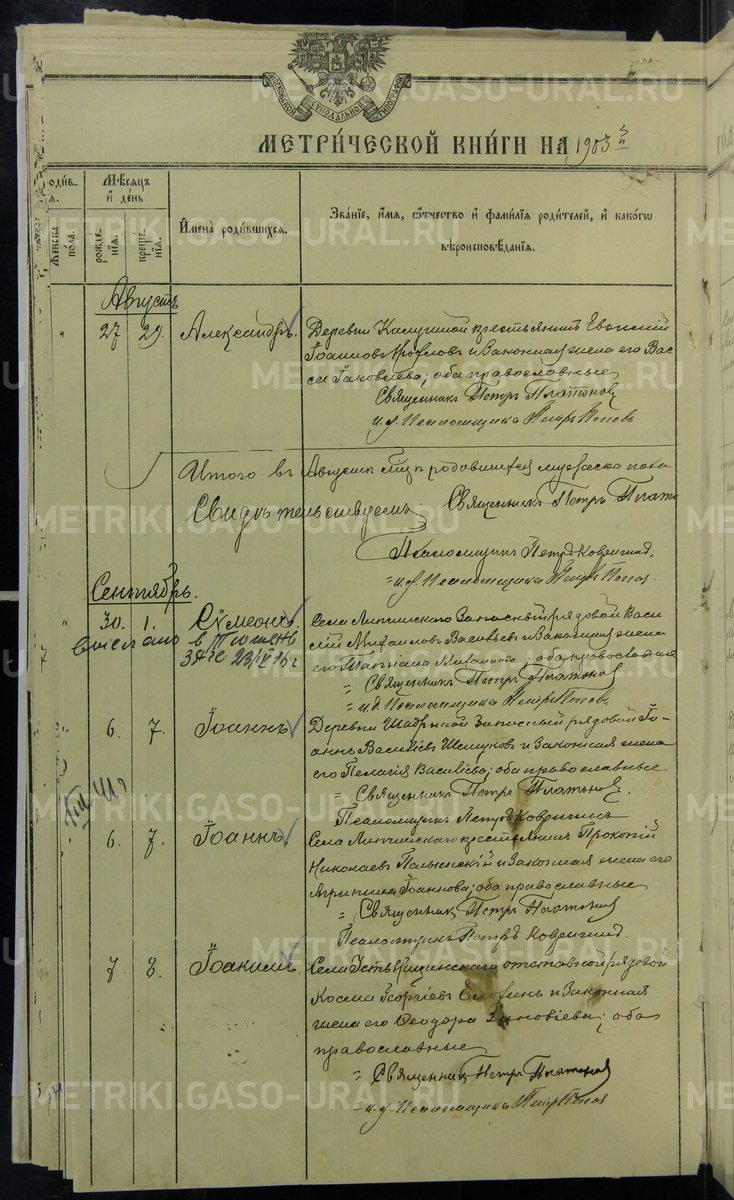 МОСКОВСКОЙ СѴНОДАЛЬНОЙ ТИПОГРАФІИ
МЕТРИ́ЧЕСКОЙ КНИ́ГИ НА 1903 й
Мѣсяцъ и́ де́нь
Женска по́ла.
рожде́нія.
креще́нія.
И́мена̀ роди́вшихся.
Зва́ніе, и́мя, ѻ҆́тчество и҆ фами́лія роди́телей, и҆ како́гѡ
вѣроисповѣ́данія.
Августъ
27 29. Александръ.
Деревни крестьянинъ
Іоанновъ и законная жена его Вас
са Іаковлева; оба православные
Священникъ Петръ Платоновъ
и.д. Псаломщика Петръ Поповъ
Итого въ Августѣ м̃цѣ родившихся мужеска пола
Свидѣтельствуемъ: Священникъ Петръ Плато
Псаломщикъ Петръ Ковригинъ.
и.д. Псаломщика Петръ Поповъ.
Сентябрь.
30. 1. Сѵмеонъ.
Села Липчинскаго Запасный рядовой Васи
лій Михаиловъ Васильевъ и Законная жена
его Татіана Михаилова; оба православные
Священникъ Петръ Платоновъ
и.д. Псаломщика Петръ Поповъ
выслано в Тюмень
ЗАГС
6. 7. Іоаннъ
Деревни Шадриной Запасный рядовой Іо
аннъ Василіевъ и Законная жена
его Пелагія Василіева; оба православные
Священникъ Петръ Платоновъ.
Псаломщикъ Петръ Ковригинъ
6. 7. Іоаннъ
Села Липчинскаго крестьянинъ Прокопій
Николаевъ и Законная жена его
Агрипина Іоаннова; оба православные
Священникъ Петръ Платоновъ
Псаломщикъ Петръ Ковригинъ.
7 8. Іоакимъ.
Села Усть Ницинскаго отставной рядовой
Косма Георгіевъ и Законная
жена его Ѳеодора Зиновіева; оба
православные
Священникъ Петръ Платоновъ
и.д. Псаломщика Петръ Поповъ
METRIKI.GASO-URAL.RU